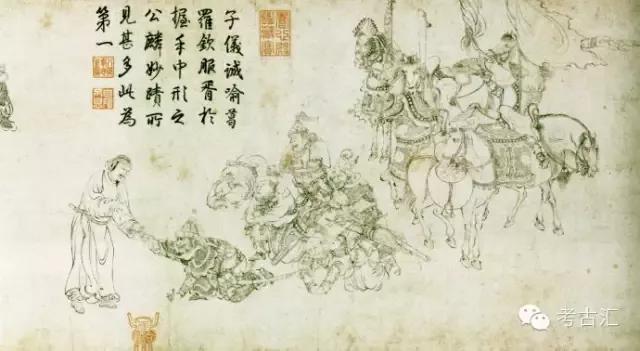 子儀誠喻葛
羅欽服胥於
握手中形之
公麟妙蹟所
見甚多此為
第一
考古汇